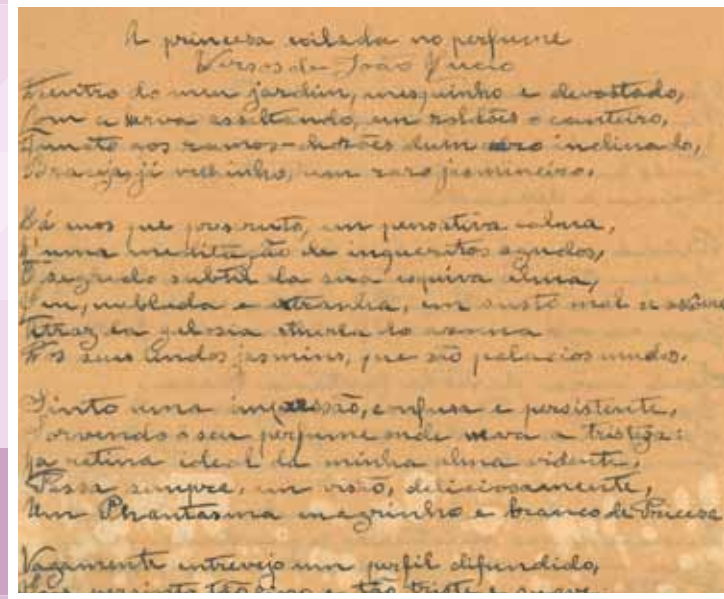 A princesa exilada no perfume
Versos de João Lucio
Dentro do meu jardim, mesquinho e devastado,
Com a herva assaltando, em roldões o canteiro,
Junto aos ramos inclinado,
Braceja já velhinho, um raro jasmineiro.
Há mos que prescruto, em pensativa calma,
N'uma meditação de inqueritos agudos,
O segredo subtil da sua esquiva alma,
nublada e extranha, em susto mal se
gelosia do aroma
dos seus lindos jasmins, que são palacios mudos.
Sinto uma impressão, confusa e persistente,
Sorvendo o seu perfume onde neva a tristeza:
Na retina ideal da minha alma vidente,
Passa sempre, em visão, deliciosamente,
Um Phantasma magrinho e branco de Princeza
Vagamente entrevejo um perfil difundido,
tão e tão triste e suave